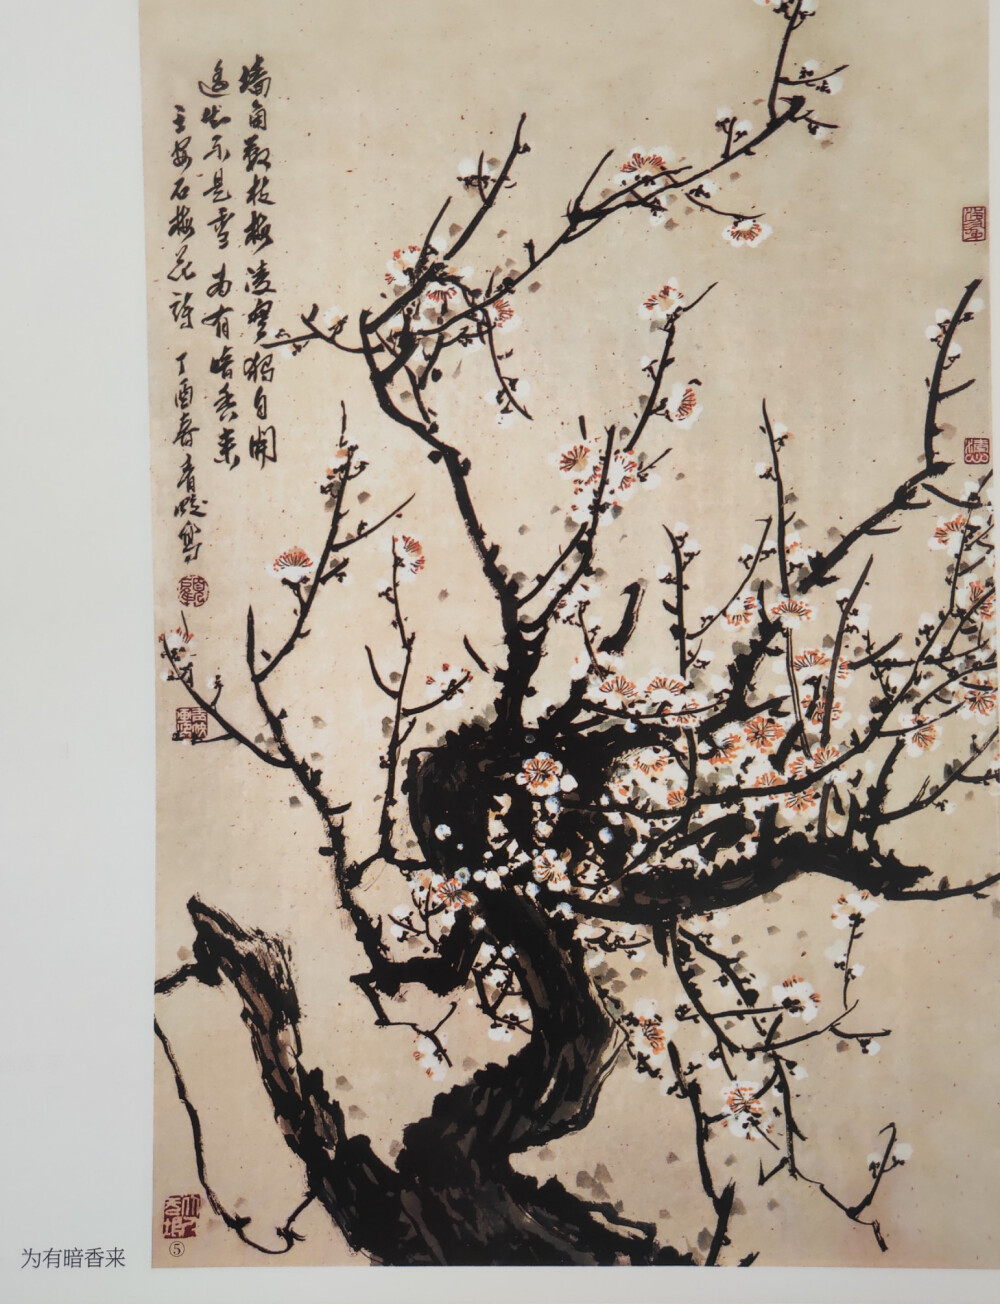 墙角数枝梅凌寒独自开
遥知不是雪为有暗香来
王安石梅花诗丁酉春
⑤
为有暗香来